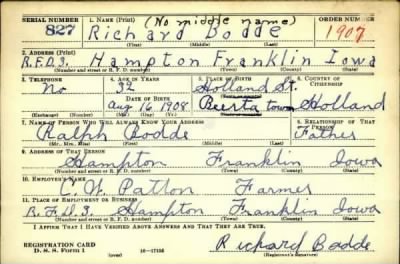 SERIAL NUMBER 1. NAME (Print) (No middle name) ORDER NUMBER
827 Richard Bodde 1907
(First) (Middle) (Last)
2. ADDRESS (Print)
R.F.D.3, Hampton Franklin Iowa
(Number and street or R. F. D. number) (Town) (County) (State)
3. TELEPHONE 4. AGE IN YEARS 5. PLACE OF BIRTH 6. COUNTRY OF CITIZENSHIP
No 32 Holland St.
DATE OF BIRTH
Aug. 16 1908 Beerta town Holland
(Exchange) (Number) (Mo.) (Day) (Yr.) (State or country)
7. NAME OF PERSON WHO WILL ALWAYS KNOW YOUR ADDRESS 8. RELATIONSHIP OF THAT PERSON
Ralph Bodde Father
(Mr., Mrs., Miss) (First) (Middle) (Last)
9. ADDRESS OF THAT PERSON
Hampton Franklin Iowa
(Number and street or R. F. D. number) (Town) (County) (State)
10. EMPLOYER'S NAME
C. W. Patton Farmer
11. PLACE OF EMPLOYMENT OR BUSINESS
R.F.D3 Hampton Franklin Iowa
(Number and street or R. F. D. number) (Town) (County) (State)
I AFFIRM THAT I HAVE VERIFIED ABOVE ANSWERS AND THAT THEY ARE TRUE.
REGISTRATION CARD
D. S. S. Form 1 16-17105 Richard Bodde
(Registrant's signature)